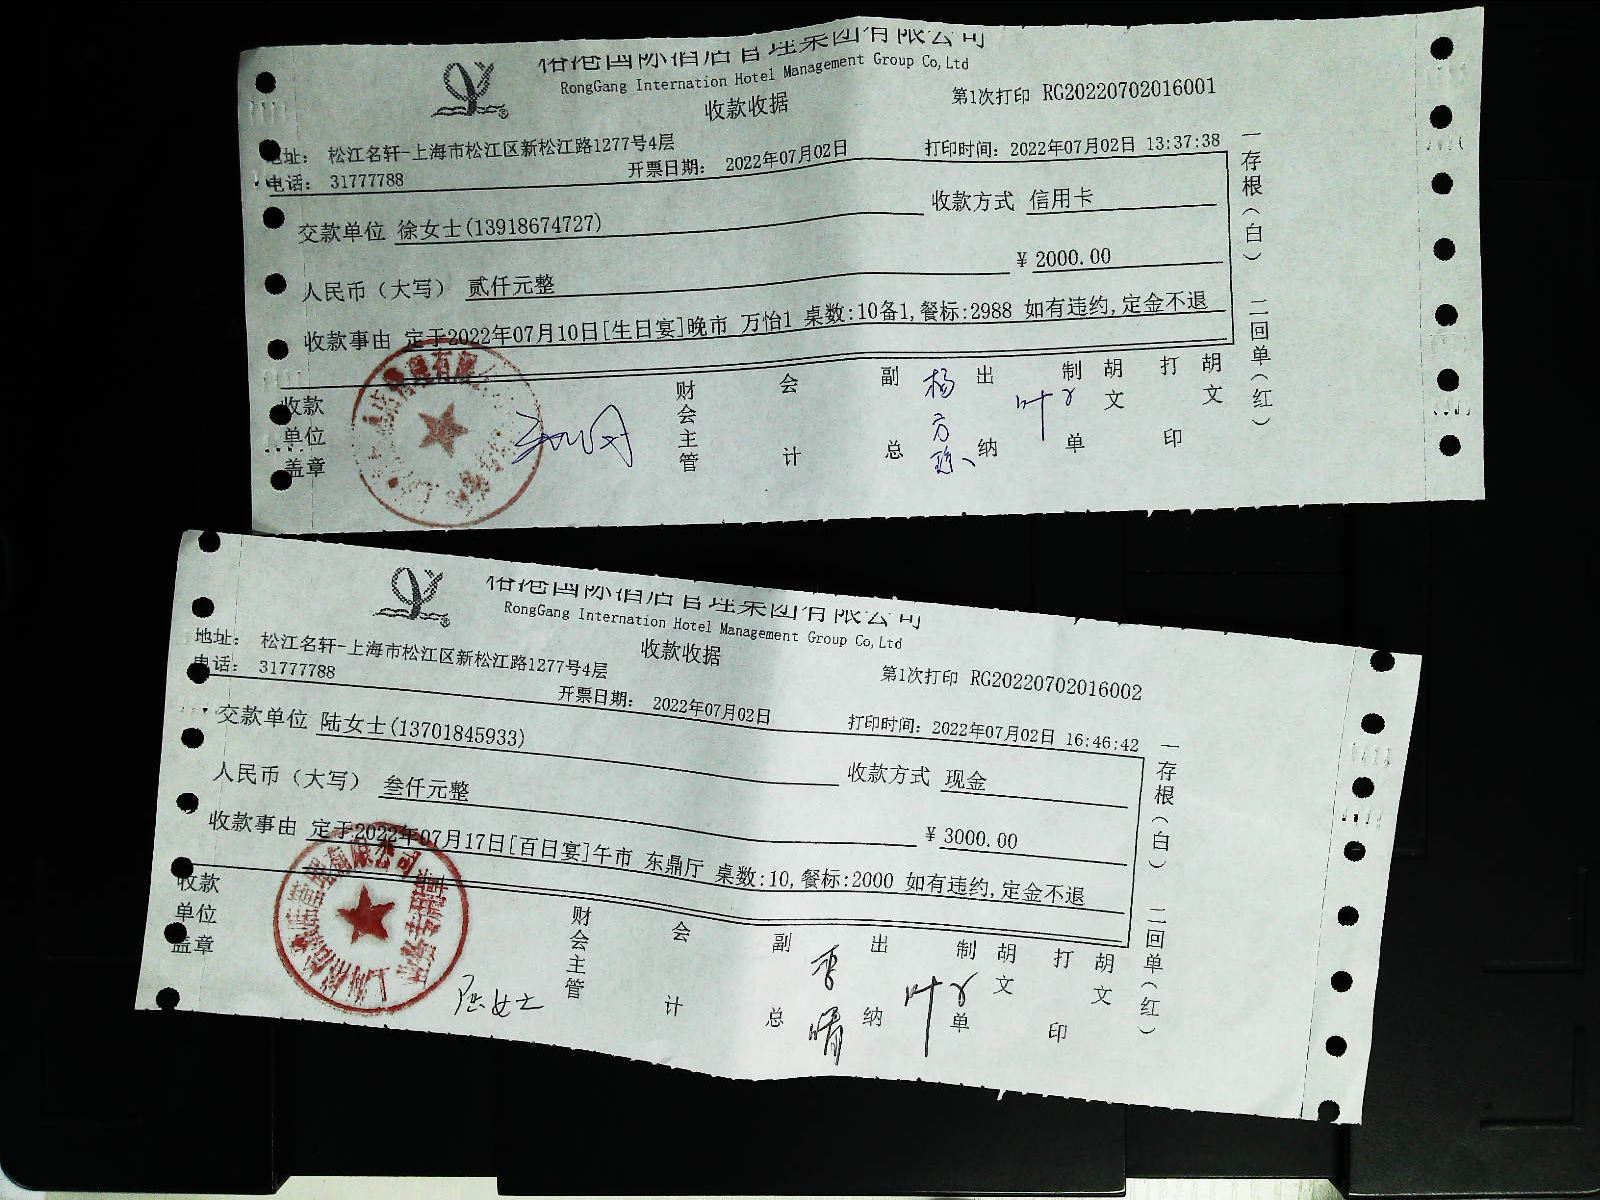 国际酒店管理集团有限公司
RongGang Internation Hotel Management Group Co,Ltd
收款收据
第1次打印 RG20220702016001
地址： 松江名轩-上海市松江区新松江路1277号4层
电话： 31777788
开票日期： 2022年07月02日
打印时间：2022年07月02日 13:37:38
交款单位 徐女士(13918674727)
收款方式 信用卡
人民币（大写） 贰仟元整
￥2000.00
收款事由 定于2022年07月10日[生日宴]晚市 万怡1 桌数:10备1,餐标:2988 如有违约,定金不退
收款单位盖章
财会主管
会计
副总
杨
出纳
叶
制单
胡文
打印
胡文
一存根（白） 二回单（红）
国际酒店管理集团有限公司
RongGang Internation Hotel Management Group Co,Ltd
收款收据
第1次打印 RG20220702016002
地址： 松江名轩-上海市松江区新松江路1277号4层
电话： 31777788
开票日期： 2022年07月02日
打印时间：2022年07月02日 16:46:42
交款单位 陆女士(13701845933)
收款方式 现金
人民币（大写） 叁仟元整
￥3000.00
收款事由 定于2022年07月17日[百日宴]午市 东鼎厅 桌数:10,餐标:2000 如有违约,定金不退
收款单位盖章
陆女士
财会主管
会计
副总
出纳
叶
制单
胡文
打印
胡文
一存根（白） 二回单（红）